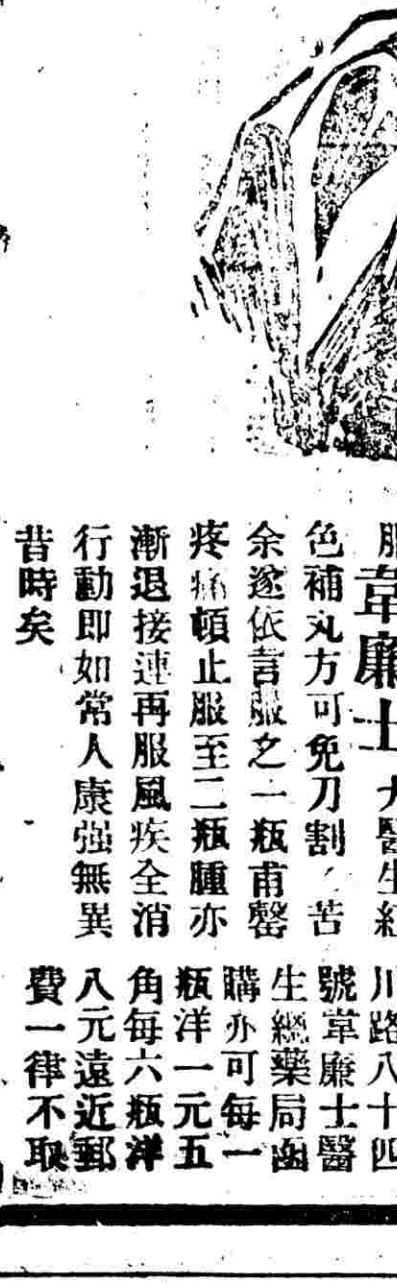 韋廉士大醫生紅
色補丸方可免刀割之苦
余遂依言服之一瓶甫罄
疼痛頓止服至二瓶腫亦
漸退接連再服風疾全消
行動即如常人康强無異
昔時矣
川路八十四
號韋廉士醫
生總藥局函
購亦可每一
瓶洋一元五
角每六瓶洋
八元遠近郵
費一律不取